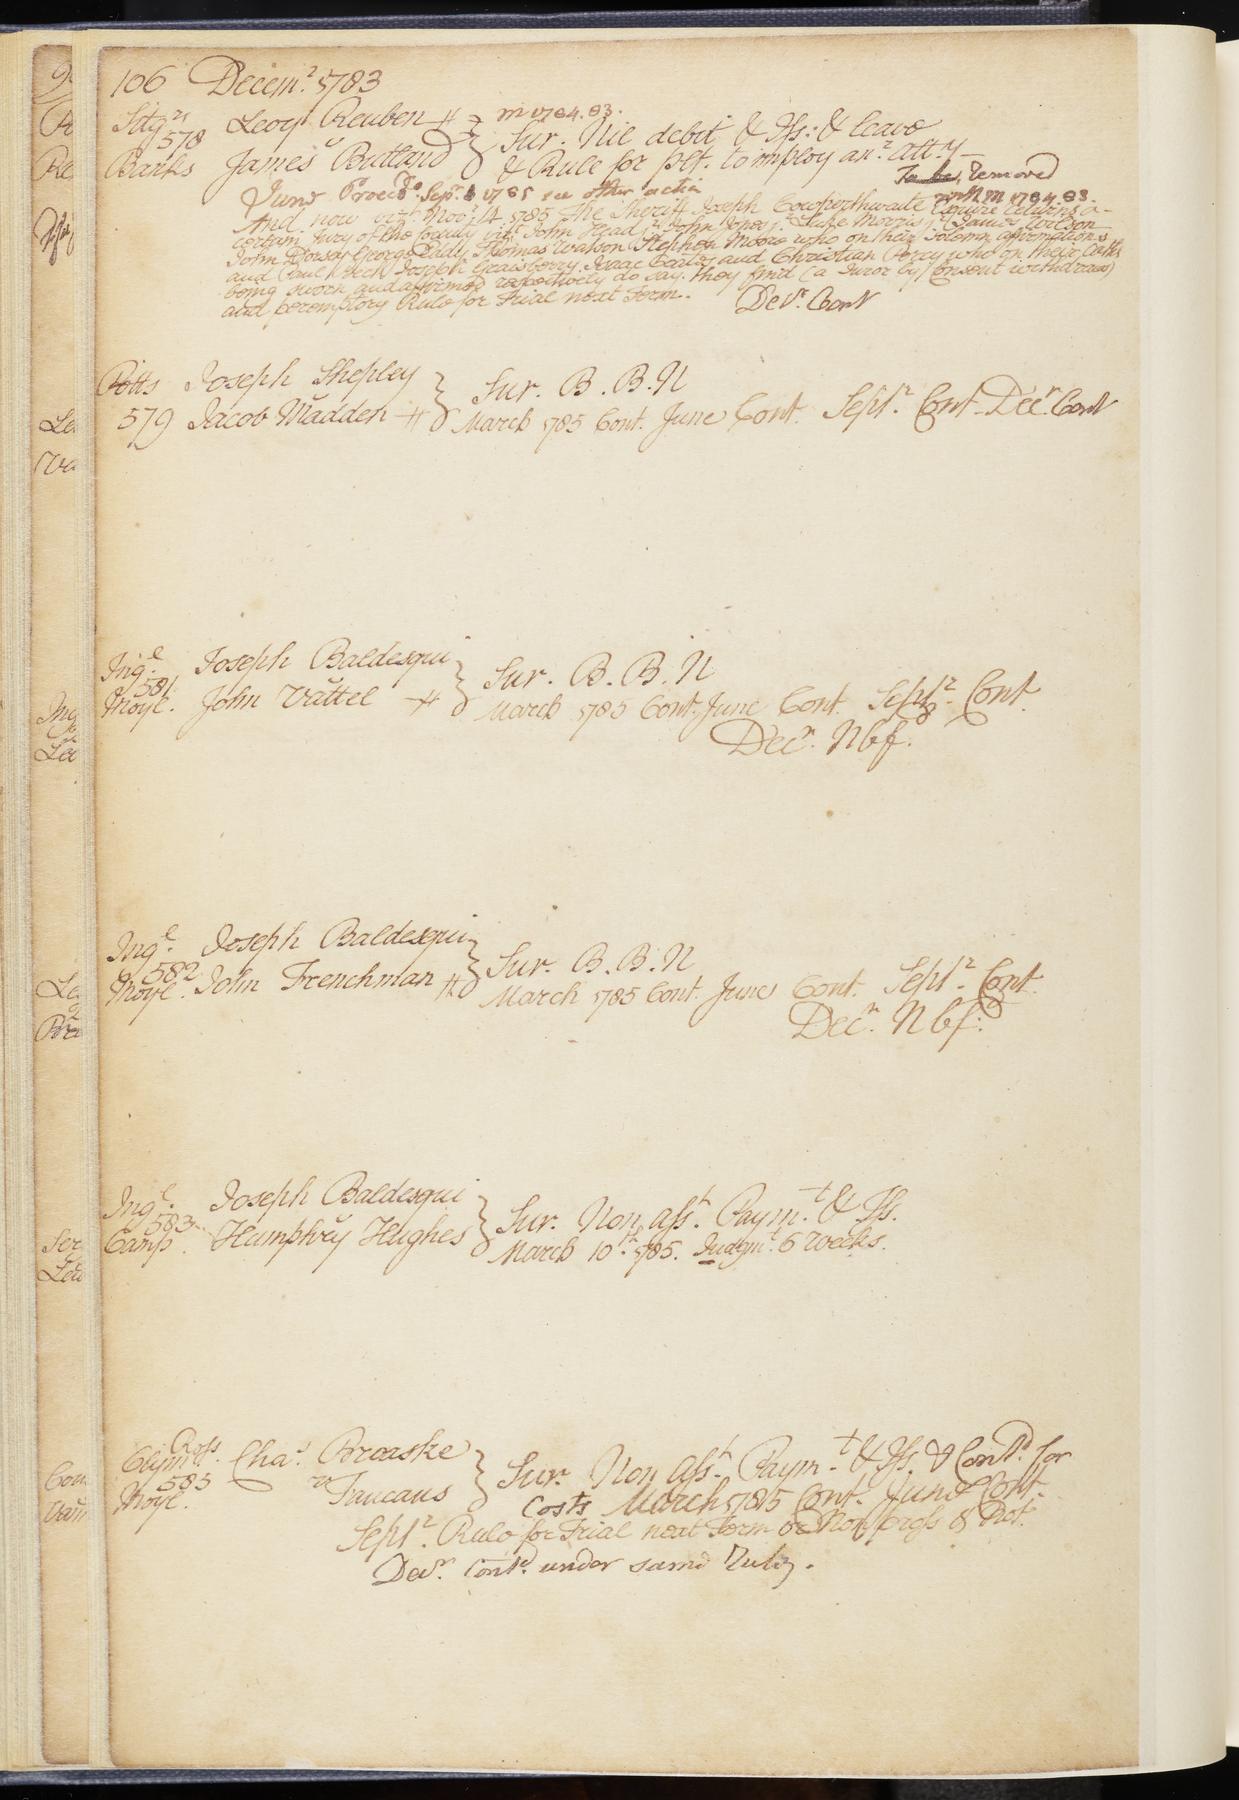 106 Decem.r 1783
Sitg.rs Levy Reuben # m 1784.83.
578 Sur. Nil debit & Iss: & leave
Banks James Rutland & Rule for plf. to imploy an.r att.y
To be removed
June Proced.o Sep.r 1785 see other action with m 1784.83.
And now viz.t Nov.r 14. 1785 the Sheriff Joseph Cowperthwaite Esquire returns a
certain Jury of the County viz.t John Head John Jones Luke Morris James Wilson
John Dorsey George Eddy Thomas Watson Stephen Moore who on their Solemn affirmations
and Joseph Grawsberry Isaac and Christian who on their Oaths
being sworn and affirmed respectively do say they find (a Juror by Consent withdrawn)
and peremptory Rule for Trial next Term. Dec.r Cont
Potts Joseph Shepley Sur. B. B. N
579 Jacob Madden # March 1785 Cont. June Cont. Sept.r Cont. Dec.r Cont
Ing.l Joseph Baldesqui Sur. B. B. N
581
Moyl. John Vattel # March 1785 Cont. June Cont. Sept.r Cont.
Dec.r Nbf.
Ing.l Joseph Baldesqui Sur. B. B. N
582
Moyl. John Frenchman # March 1785 Cont. June Cont. Sept.r Cont.
Dec.r Nbf.
Ing.l Joseph Baldesqui Sur. Non. ass.t Paym.t & Iss.
583
Camp. Humphrey Hughes March 10.th 1785. Judgm.t 6 Weeks.
Ross.
Clym.r Cha.s Broaske Sur. Non Ass.t Paym.t & Iss. & Cont.d for
585
Moyl. v Faucans Costs March 1785 Cont. June Cont.
Sept.r Rule for Trial next Term or Non pross & Not.
Dec.r Cont.d under same Rule.